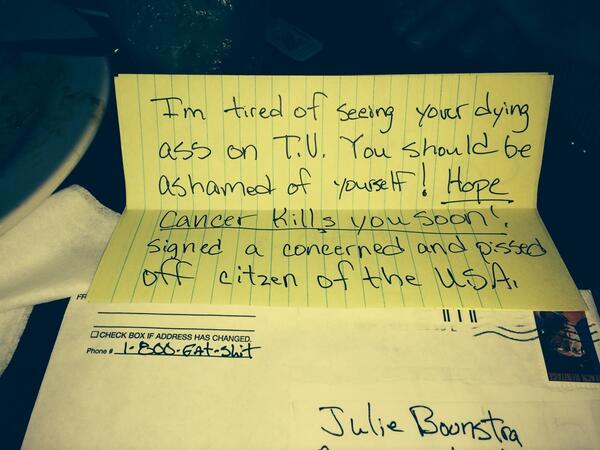 I'm tired of seeing your dying
ass on T.V. You should be
ashamed of yourself! Hope
cancer kills you soon!
signed a concerned and pissed
off citzen of the USA.
CHECK BOX IF ADDRESS HAS CHANGED.
Phone # 1-800-EAT-Shit
Julie Boonstra